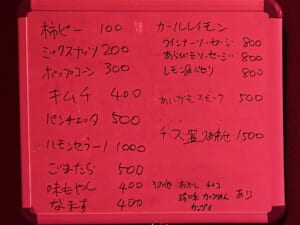 柿ピー 100
ミックスナッツ 200
ポップコーン 300
キムチ 400
パンチェッタ 500
1000
ごまたら 500
味もやし 400
なます 400
カールレイモン
ウインナーソーセージ 800
あらびきソーセージ 800
レモン&パセリ 800
あいがもスモーク 500
チーズ盛り合わせ 1500
その他 おかし チョコ
珍味 カップめん あり